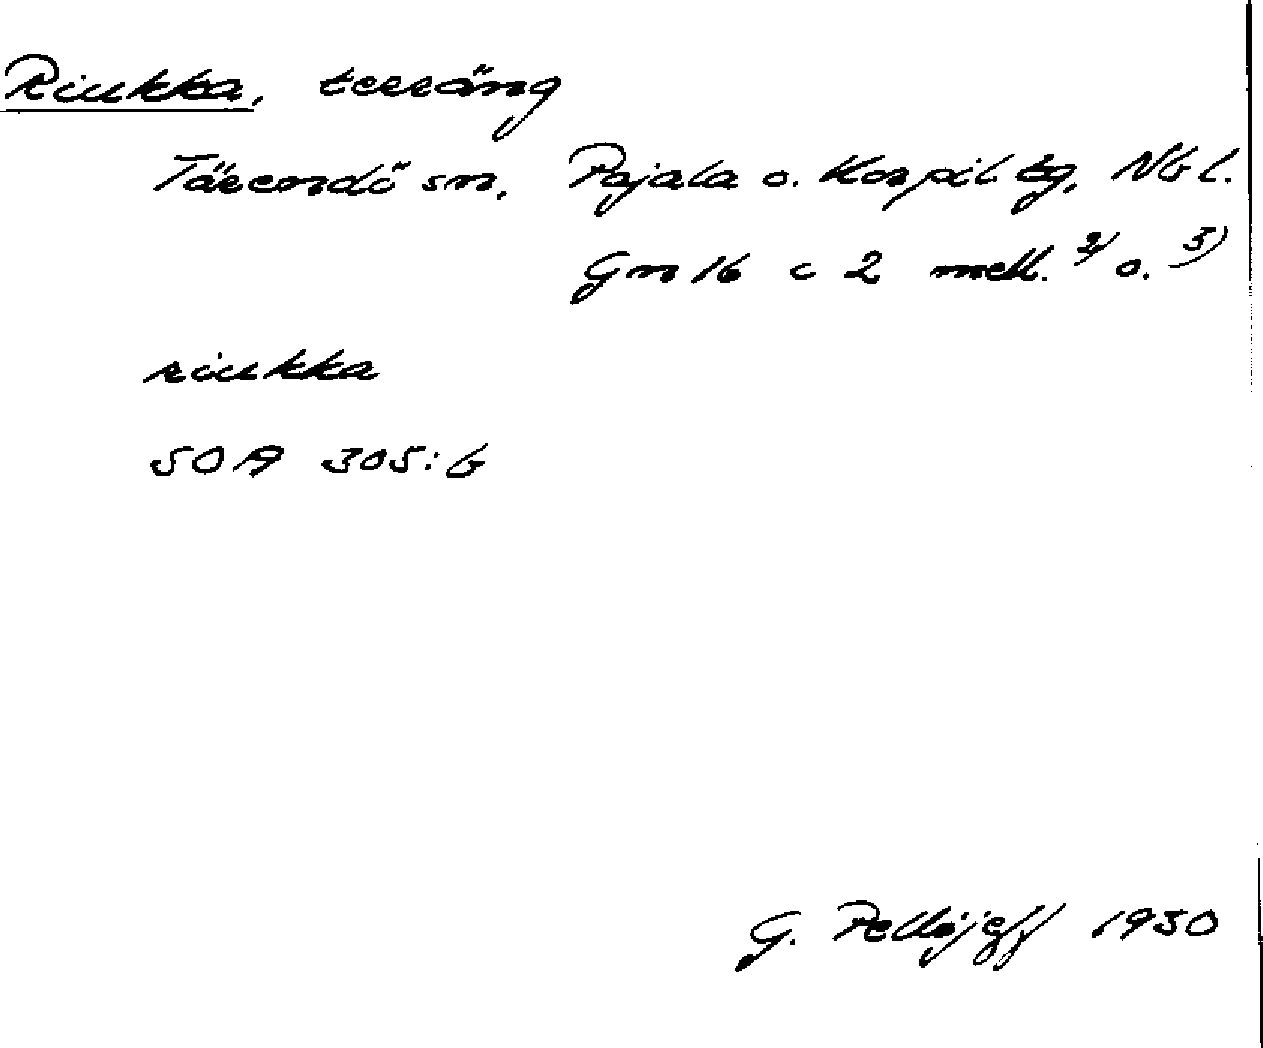 Riukka, terräng
Tärendö sn, Pajala o. Korpil tg, Nb l.
Gm 16 c 2 mell. 2) o. 3)
riukka
SOA 305:6
G. Pellijeff 1950